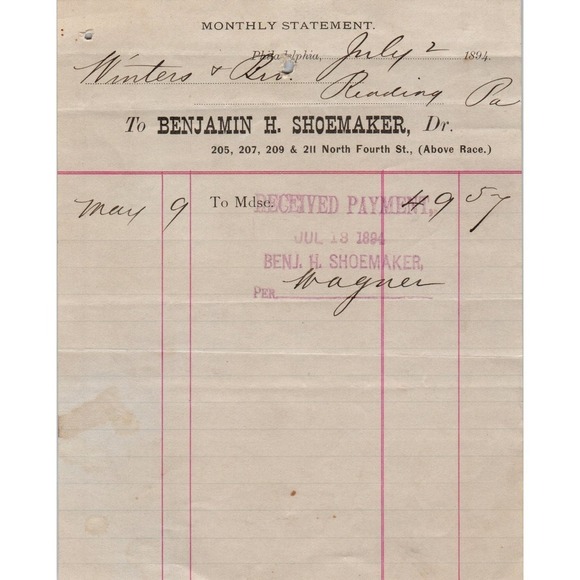 MONTHLY STATEMENT.
Philadelphia, July 2 1894
Winters & Bro.
Reading Pa
To BENJAMIN H. SHOEMAKER, Dr.
205, 207, 209 & 211 North Fourth St., (Above Race.)
May 9 To Mdse. 49 57
RECEIVED PAYMENT,
JUL 13 1894
BENJ. H. SHOEMAKER,
PER Wagner